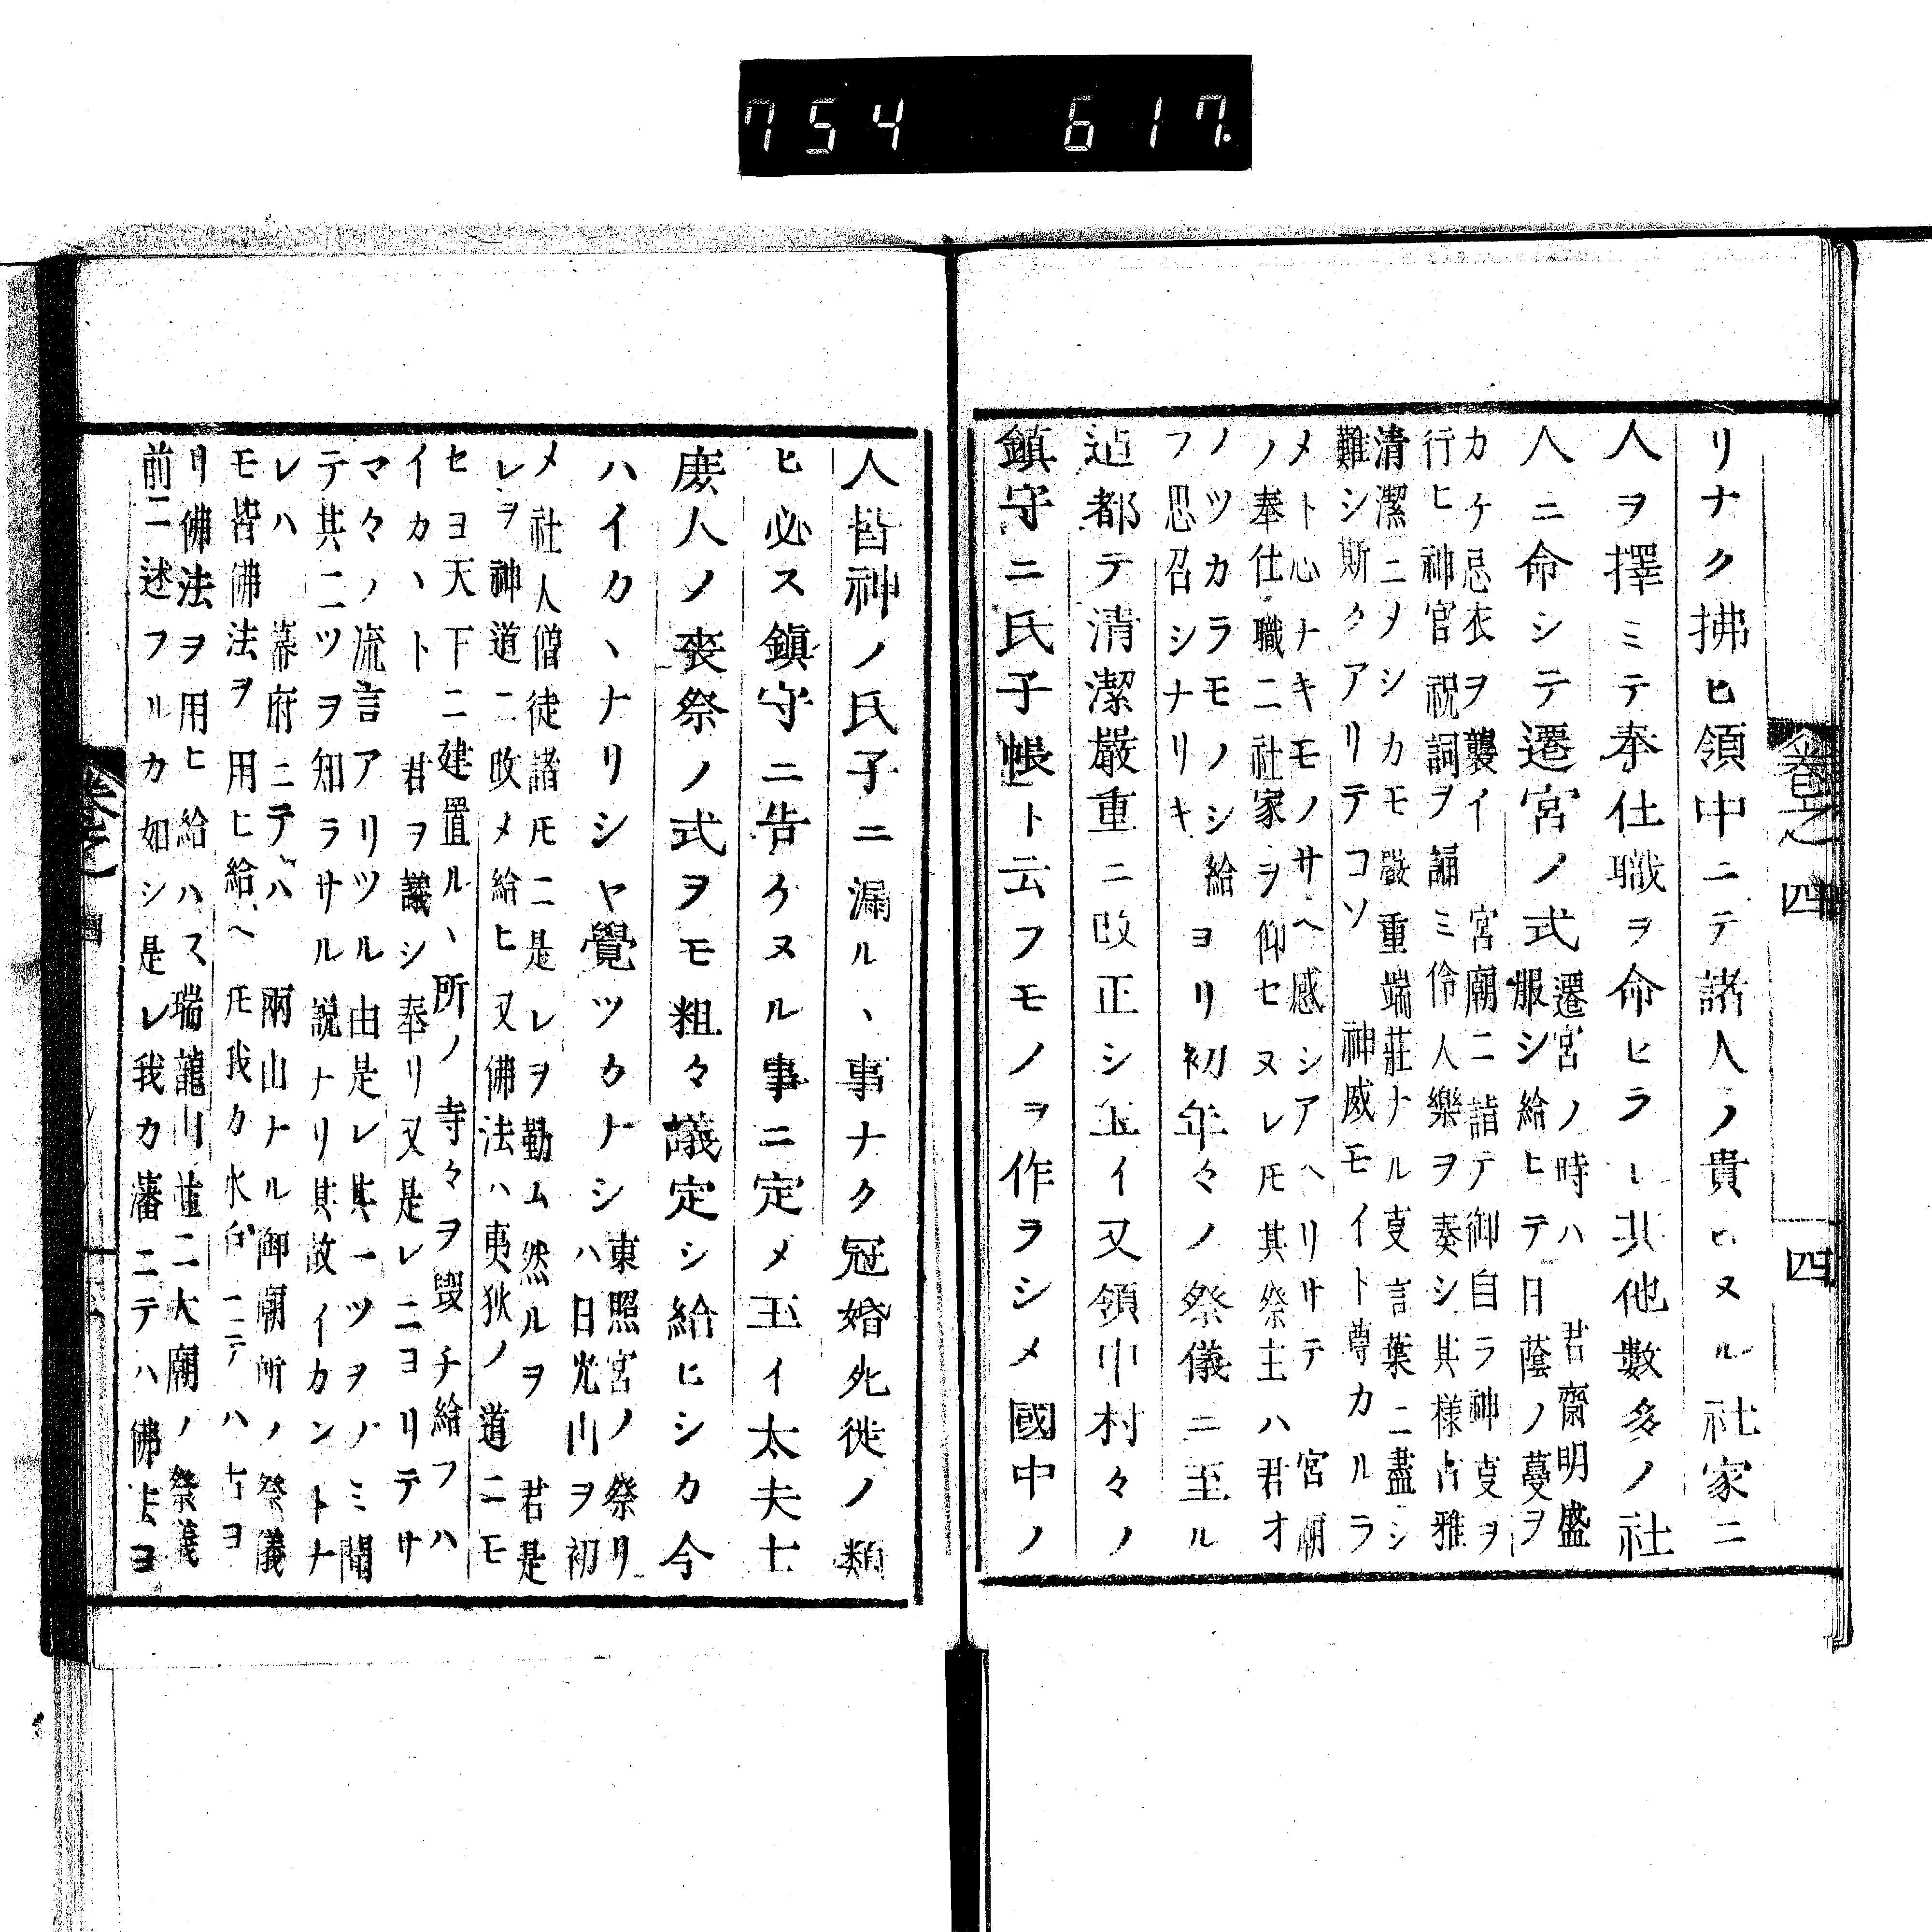 754 617.
卷之 四 四
リナク拂ヒ領中ニテ諸人ノ貴ヒヌル社家ニ
人ヲ擇ミテ奉仕職ヲ命ヒラレ其他數多ノ社
人ニ命シテ遷宮ノ式
遷宮ノ時ハ 君齋明盛
服シ給ヒテ日蔭ノ蔓ヲ
カケ忌衣ヲ襲イ 宮廟ニ詣テ御自ラ神叓ヲ
行ヒ神官祝詞ヲ誦ミ伶人樂ヲ奏シ其様古雅
清潔ニメシカモ嚴重端莊ナル叓言葉ニ盡シ
難シ斯クアリテコソ 神威モイト尊カルラ
メト心ナキモノサヘ感シアヘリサテ 宮廟
ノ奉仕職ニ社家ヲ仰セヌレ𪜈其祭主ハ君オ
ノツカラモノシ給
フ思召シナリキ
ヨリ初年々ノ祭儀ニ至ル
迠都テ清潔嚴重ニ改正シ玉イ又領中村々ノ
鎮守ニ氏子帳ト云フモノヲ作ラシメ國中ノ
人皆神ノ氏子ニ漏ル、事ナク冠婚死徙ノ類
ヒ必ス鎮守ニ告ケヌル事ニ定メ玉イ太夫士
庶人ノ喪祭ノ式ヲモ粗々議定シ給ヒシカ今
ハイカ、ナリシヤ覺ツカナシ
東照宮ノ祭リ
ハ日光山ヲ初
メ社人僧徒諸𪜈ニ是レヲ勤ム然ルヲ 君是
レヲ神道ニ改メ給ヒ又佛法ハ夷狄ノ道ニモ
セヨ天下ニ建置ル、所ノ寺々ヲ毀チ給フハ
イカ、ト 君ヲ議シ奉リ又是レニヨリテサ
マ々ノ流言アリツル由是レ其一ツヲノミ聞
テ其二ツヲ知ラサル説ナリ其故イカントナ
レハ 幕府ニテハ 兩山ナル御廟所ノ祭儀
モ皆佛法ヲ用ヒ給ヘ𪜈我カ水府ニテハ古ヨ
リ佛法ヲ用ヒ給ハス瑞龍山並ニ大廟ノ祭儀
前ニ述フルカ如シ是レ我カ藩ニテハ佛法ヨ